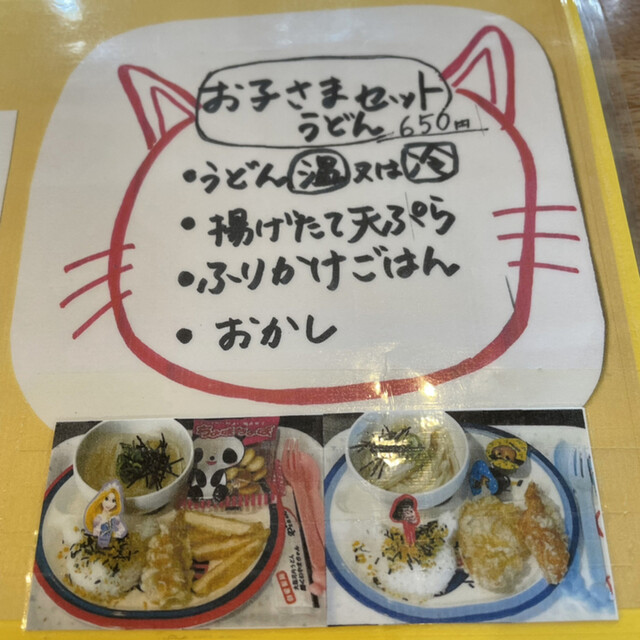 お子さまセット
うどん 650円
・うどん 温 又は 冷
・揚げたて天ぷら
・ふりかけごはん
・おかし